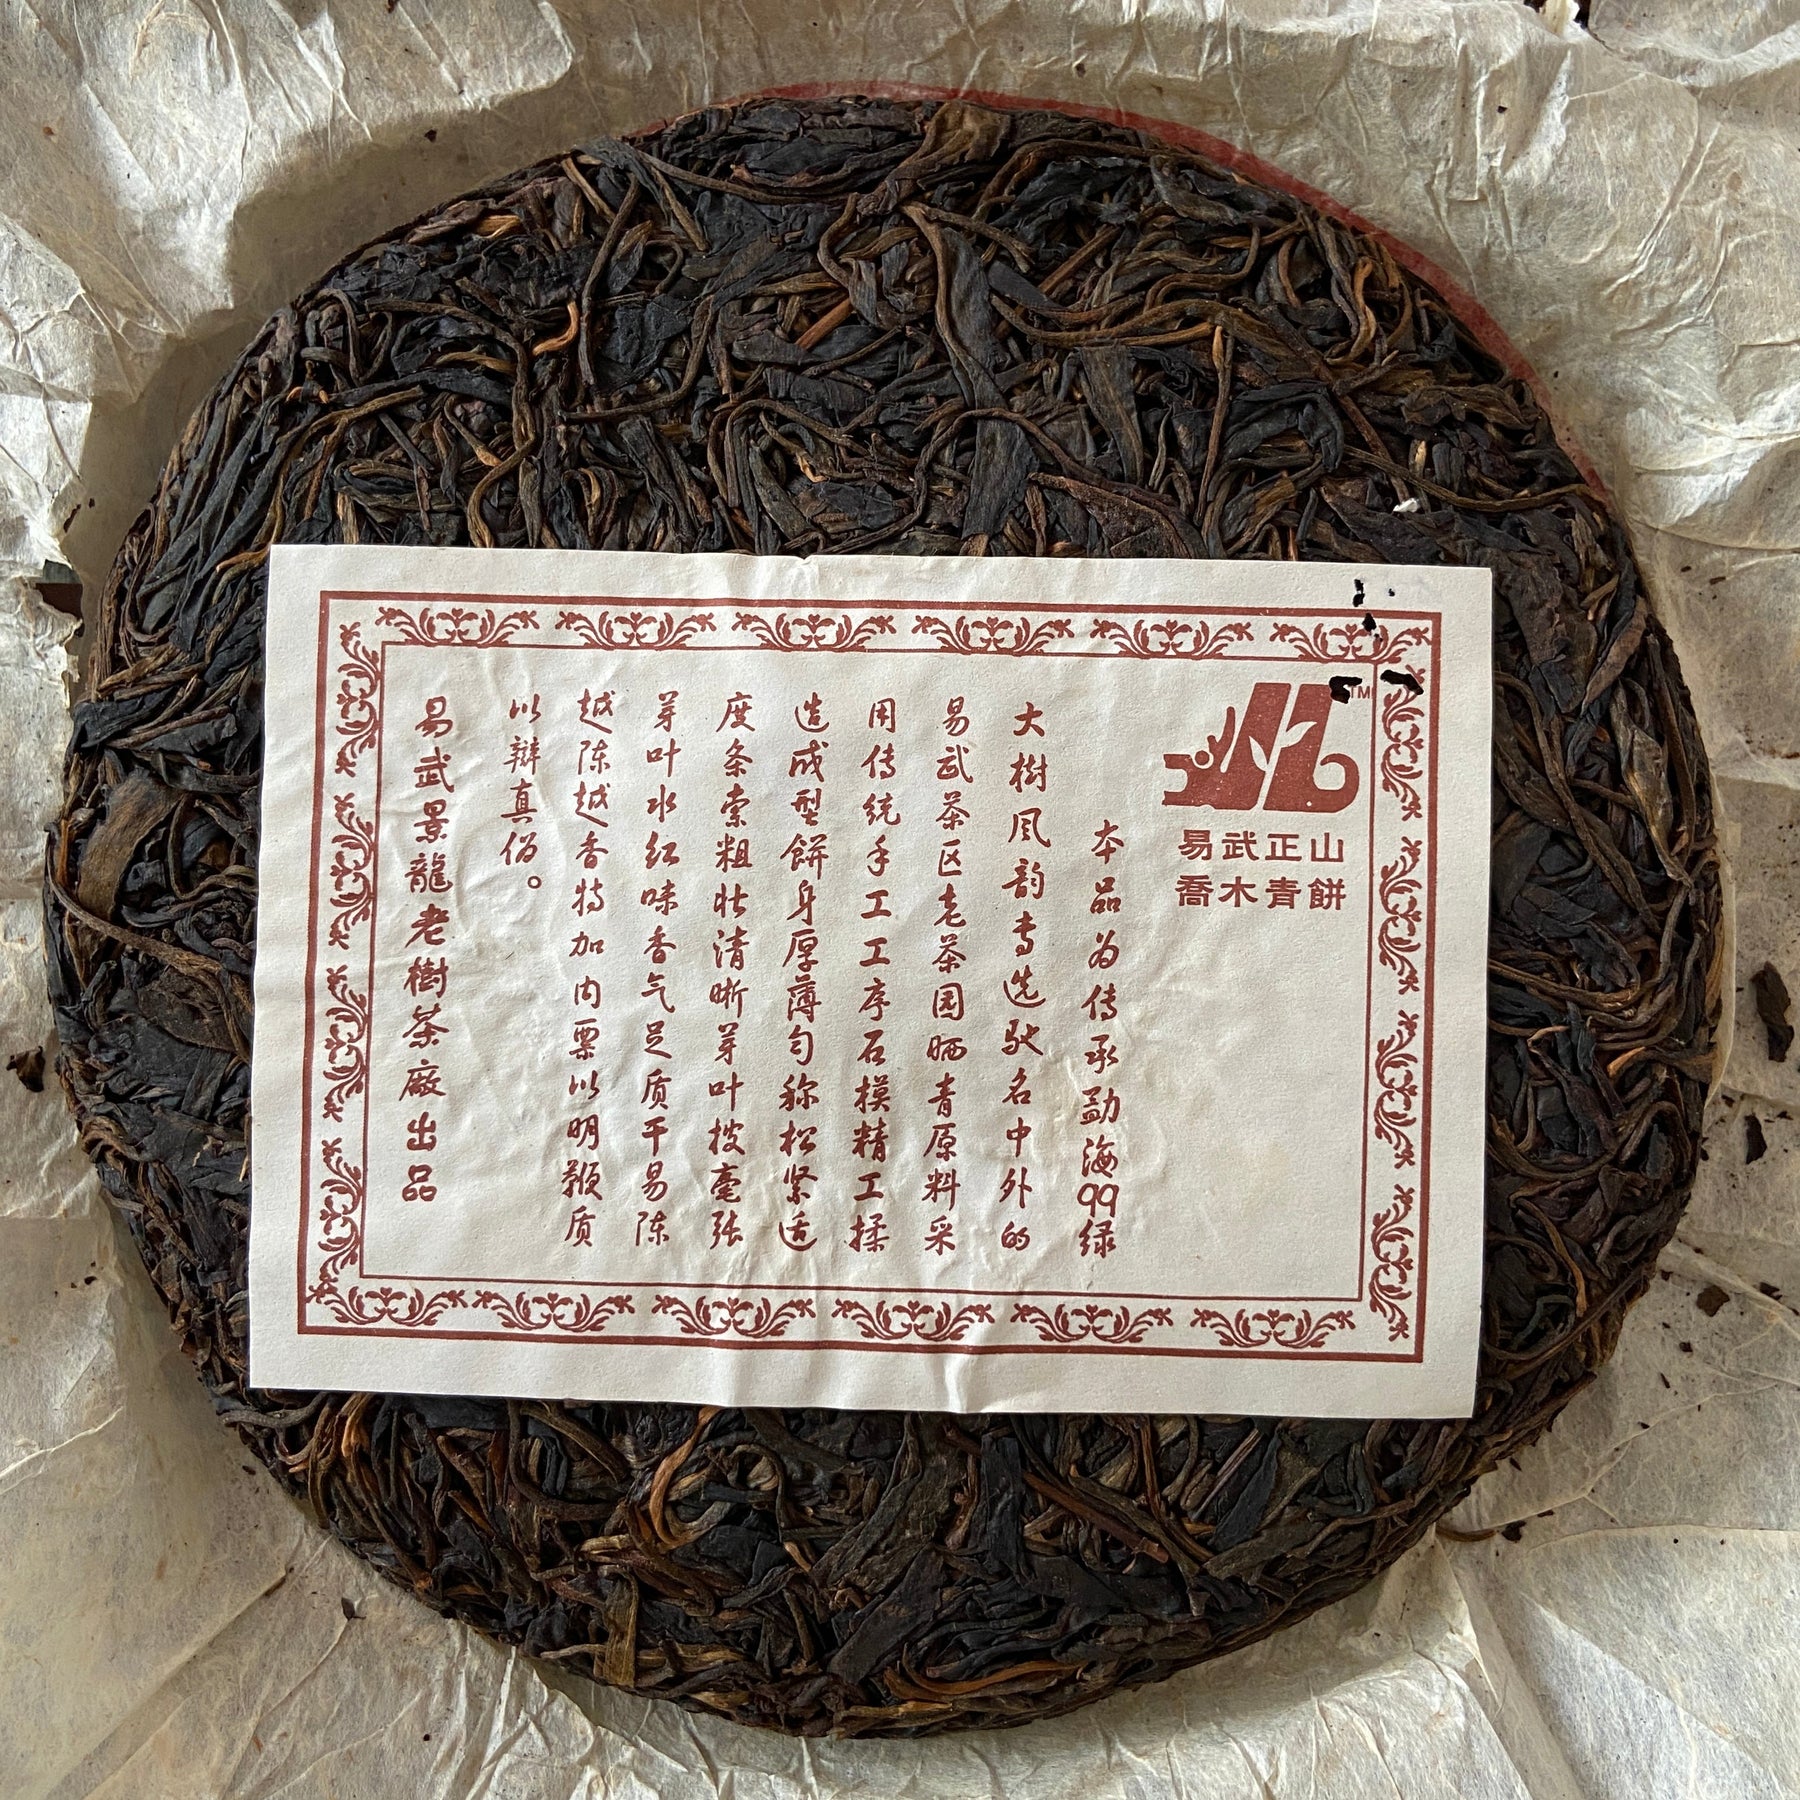 TM
易武正山
喬木青餅
本品为传承勐海99绿
大樹风韵专选驰名中外的
易武茶区老茶园晒青原料采
用传统手工工序石模精工揉
造成型餅身厚薄匀称松紧适
度条索粗壮清晰芽叶披毫张
芽叶水红味香气足质干易陈
越陈越香特加内票以明鞭质
以辩真伪。
易武景龍老樹茶廠出品